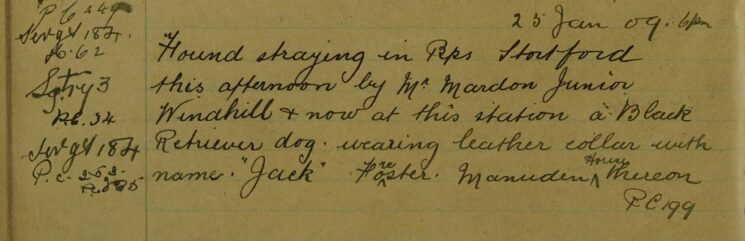 P.C 249
Sergt 184.
P.C. 62
3
P.C. 34
Sergt 184
P.c. 
25 Jan 09. 6pm
"Found straying in Bps Stortford
this afternoon by Mr Mardon Junior
Windhill & now at this station a Black
Retriever dog. wearing leather collar with
name "Jack" Forester. Manuden House thereon
P.C 199